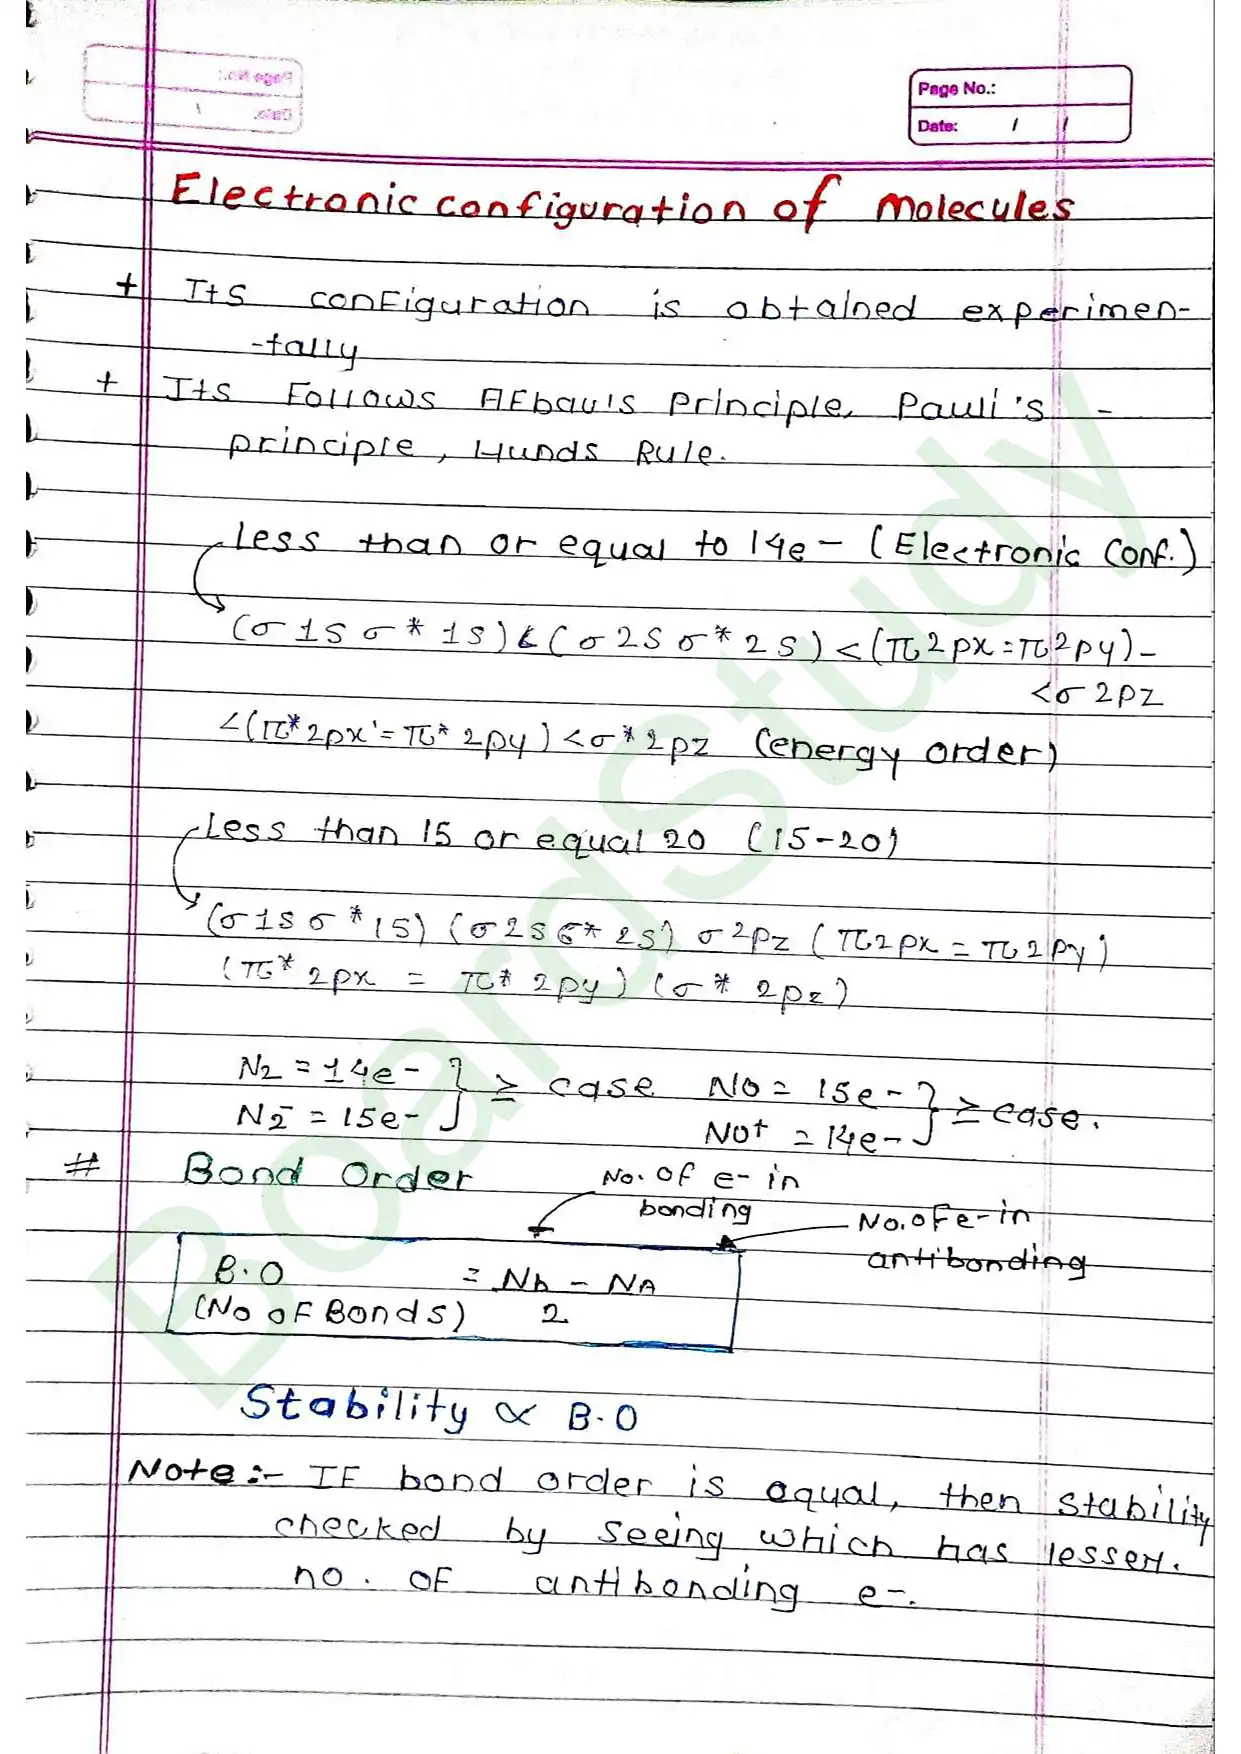 Page No.:
Date: / /
Electronic configuration of Molecules
+ Its configuration is obtained experimen-
-tally
+ Its Follows AFbau's Principle, Pauli's -
principle, Hunds Rule.
less than or equal to 14e- (Electronic Conf.)
(σ 1s σ* 1s) < (σ 2s σ* 2s) < (π 2px = π 2py) -
< σ 2pz
< (π* 2px = π* 2py) < σ* 2pz (energy order)
Less than 15 or equal 20 (15-20)
(σ 1s σ* 1s) (σ 2s σ* 2s) σ 2pz (π 2px = π 2py)
(π* 2px = π* 2py) (σ* 2pz)
N2 = 14e- } ≥ case NO = 15e- } ≥ case.
N2- = 15e- NO+ = 14e-
# Bond Order
No. of e- in
bonding
No. of e- in
antibonding
B.O = Nb - NA
(No of Bonds) 2
Stability ∝ B.O
Note :- IF bond order is equal, then stability
checked by seeing which has lesser.
no. of antibonding e-.
BoardStudy